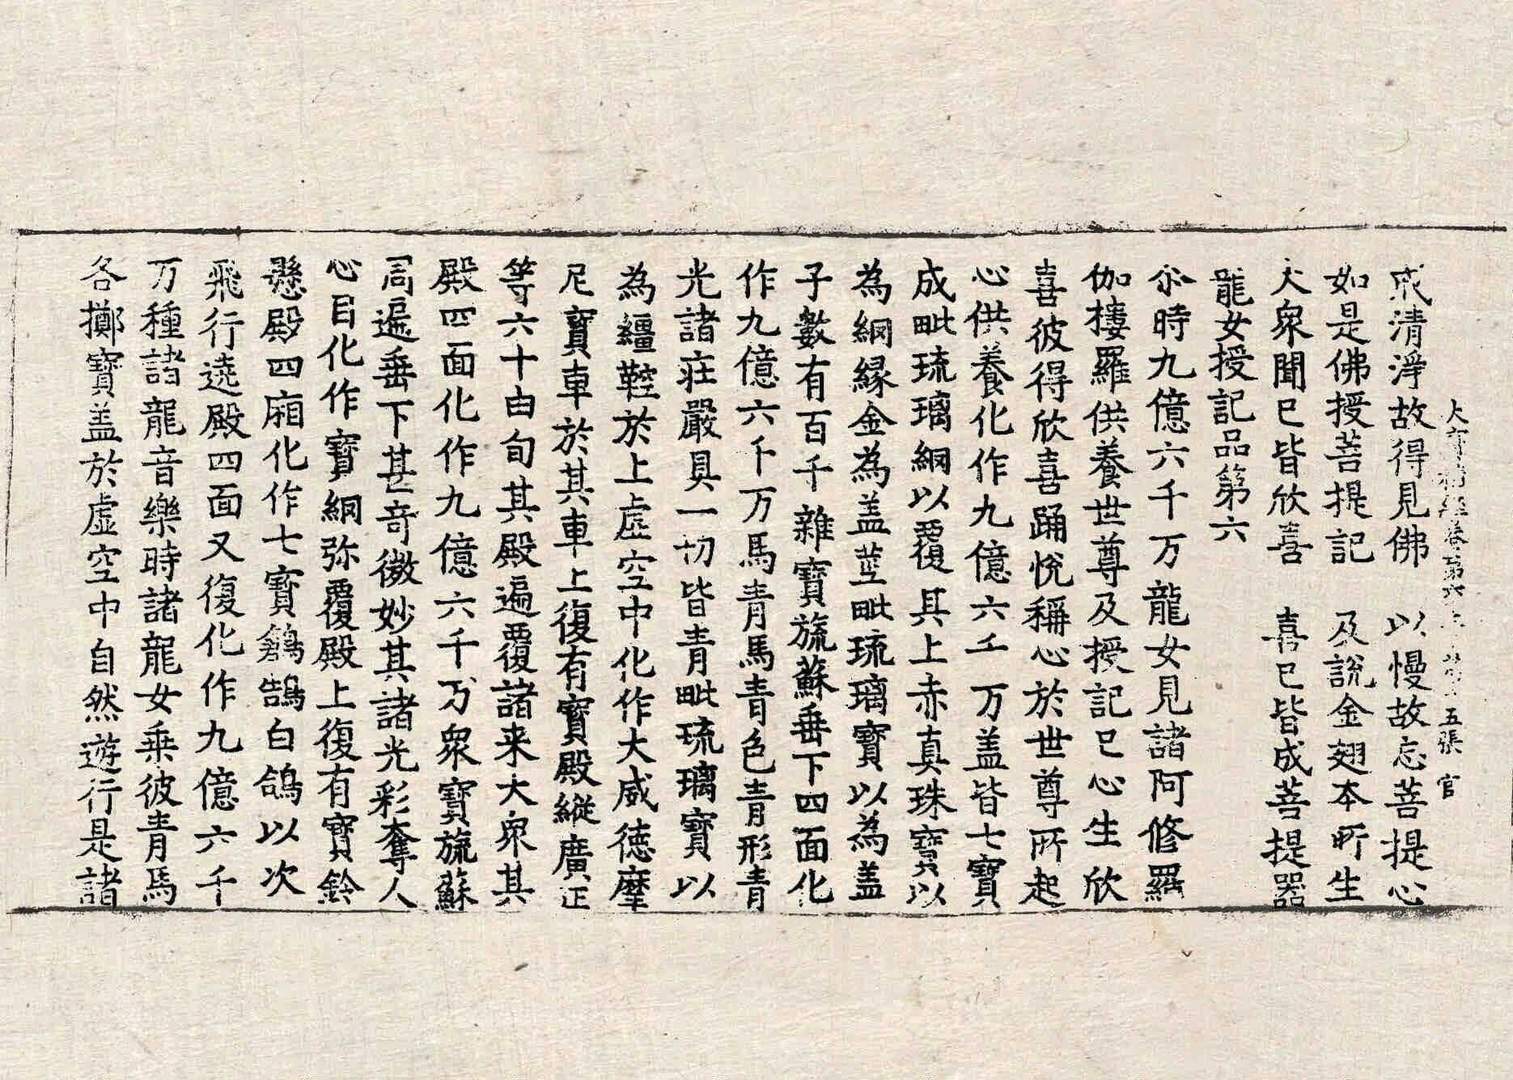 大寶積經卷第六十 第十五張 官
成清淨故得見佛 以慢故忘菩提心
如是佛授菩提記 及說金翅本所生
大衆聞已皆欣喜 喜已皆成菩提器
龍女授記品第六
尒時九億六千万龍女見諸阿修羅
伽樓羅供養世尊及授記已心生欣
喜彼得欣喜踊悅稱心於世尊所起
心供養化作九億六千万盖皆七寶
成毗琉璃網以覆其上赤真珠寶以
為網緣金為盖莖毗琉璃寶以為盖
子數有百千雜寶旒蘇垂下四面化
作九億六千万馬青馬青色青形青
光諸莊嚴具一切皆青毗琉璃寶以
為繮鞚於上虛空中化作大威德摩
尼寶車於其車上復有寶殿縱廣正
等六十由旬其殿遍覆諸来大衆其
殿四面化作九億六千万衆寶旒蘇
周遍垂下甚奇微妙其諸光彩奪人
心目化作寶網弥覆殿上復有寶鈴
懸殿四廂化作七寶鶬鵠白鴿以次
飛行遶殿四面又復化作九億六千
万種諸龍音樂時諸龍女乘彼青馬
各擲寶盖於虛空中自然遊行是諸